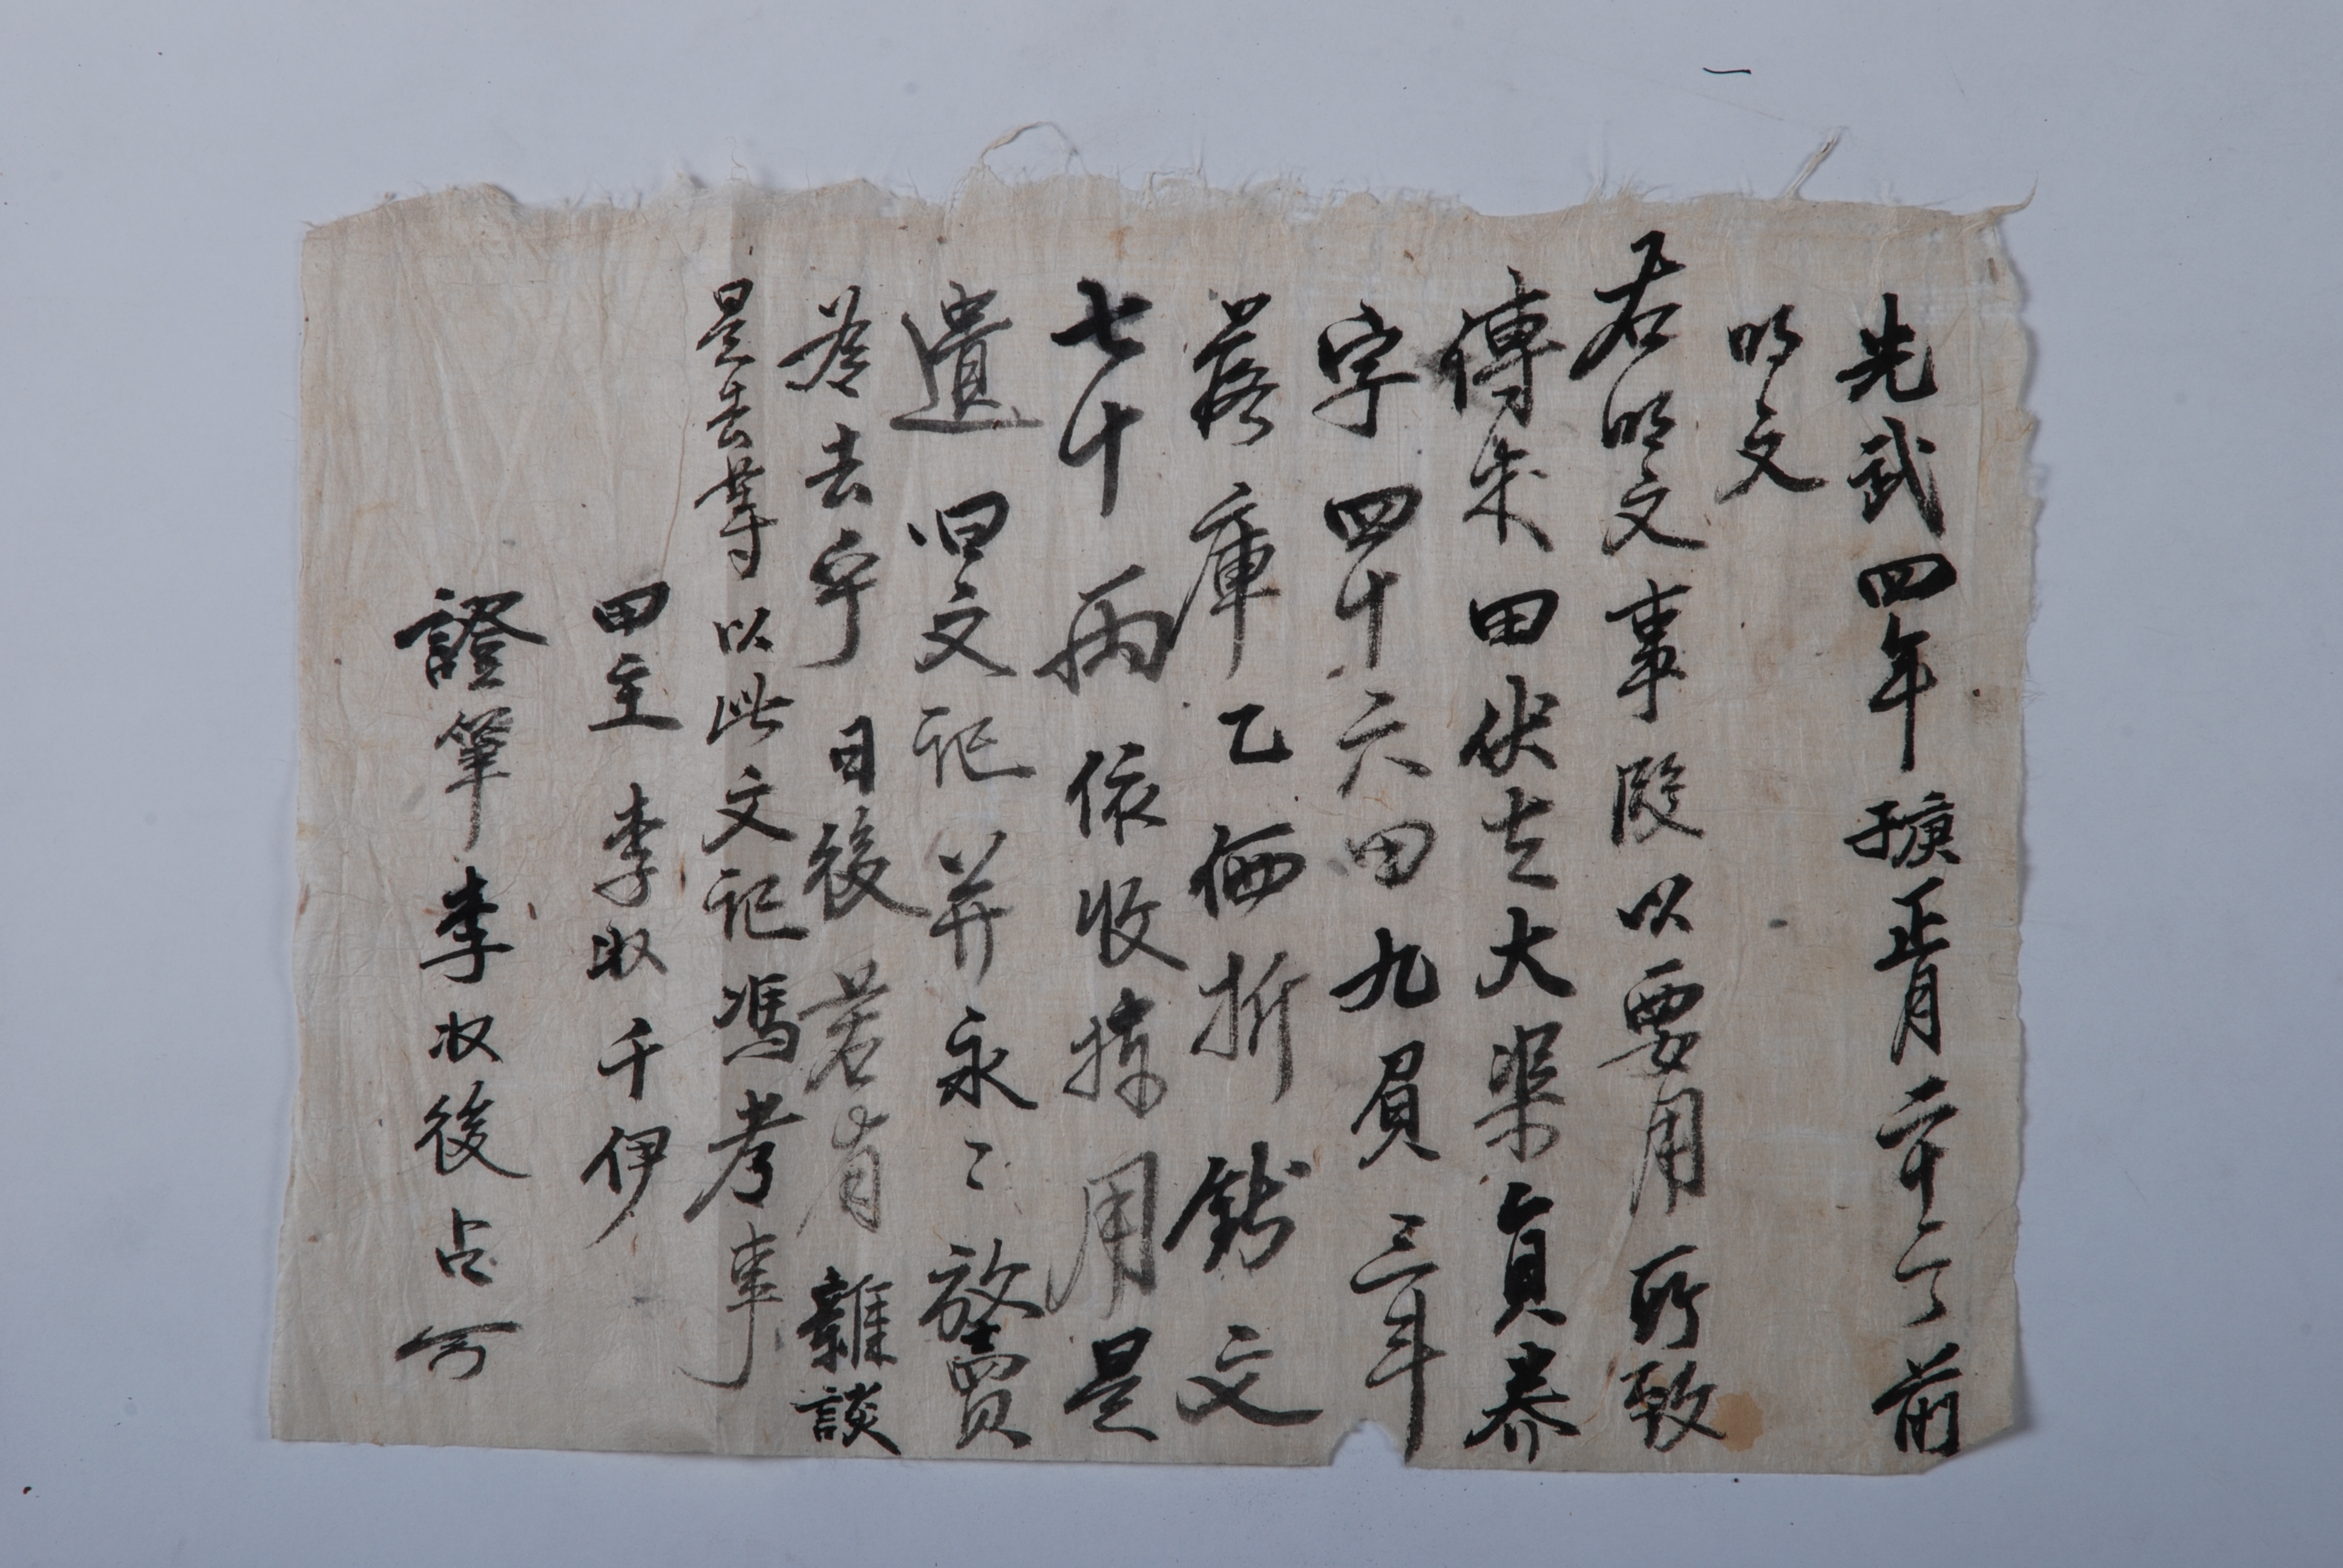 光武四年庚子正月二十六日前
明文
右明文事段以要用所致
傳来田伏在大渠員恭
字四十六田九負三斗
落庫乙価折錢文
七十兩依收捧用是
遣旧文記并永〻放賣
為去乎日後若有雜談
是去等以此文記馮考事
田主李召千伊
證筆李召後占